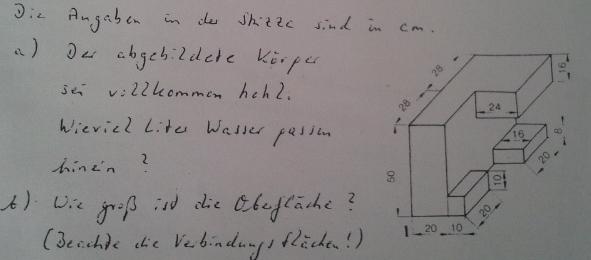 Die Angaben in der Skizze sind in cm.
a) Der abgebildete Körper
sei vollkommen hohl.
Wieviel Liter Wasser passen
hinein?
b) Wie groß ist die Oberfläche?
(Beachte die Verbindungsflächen!)
28
28
16
24
16
8
20
50
10
20
20
10